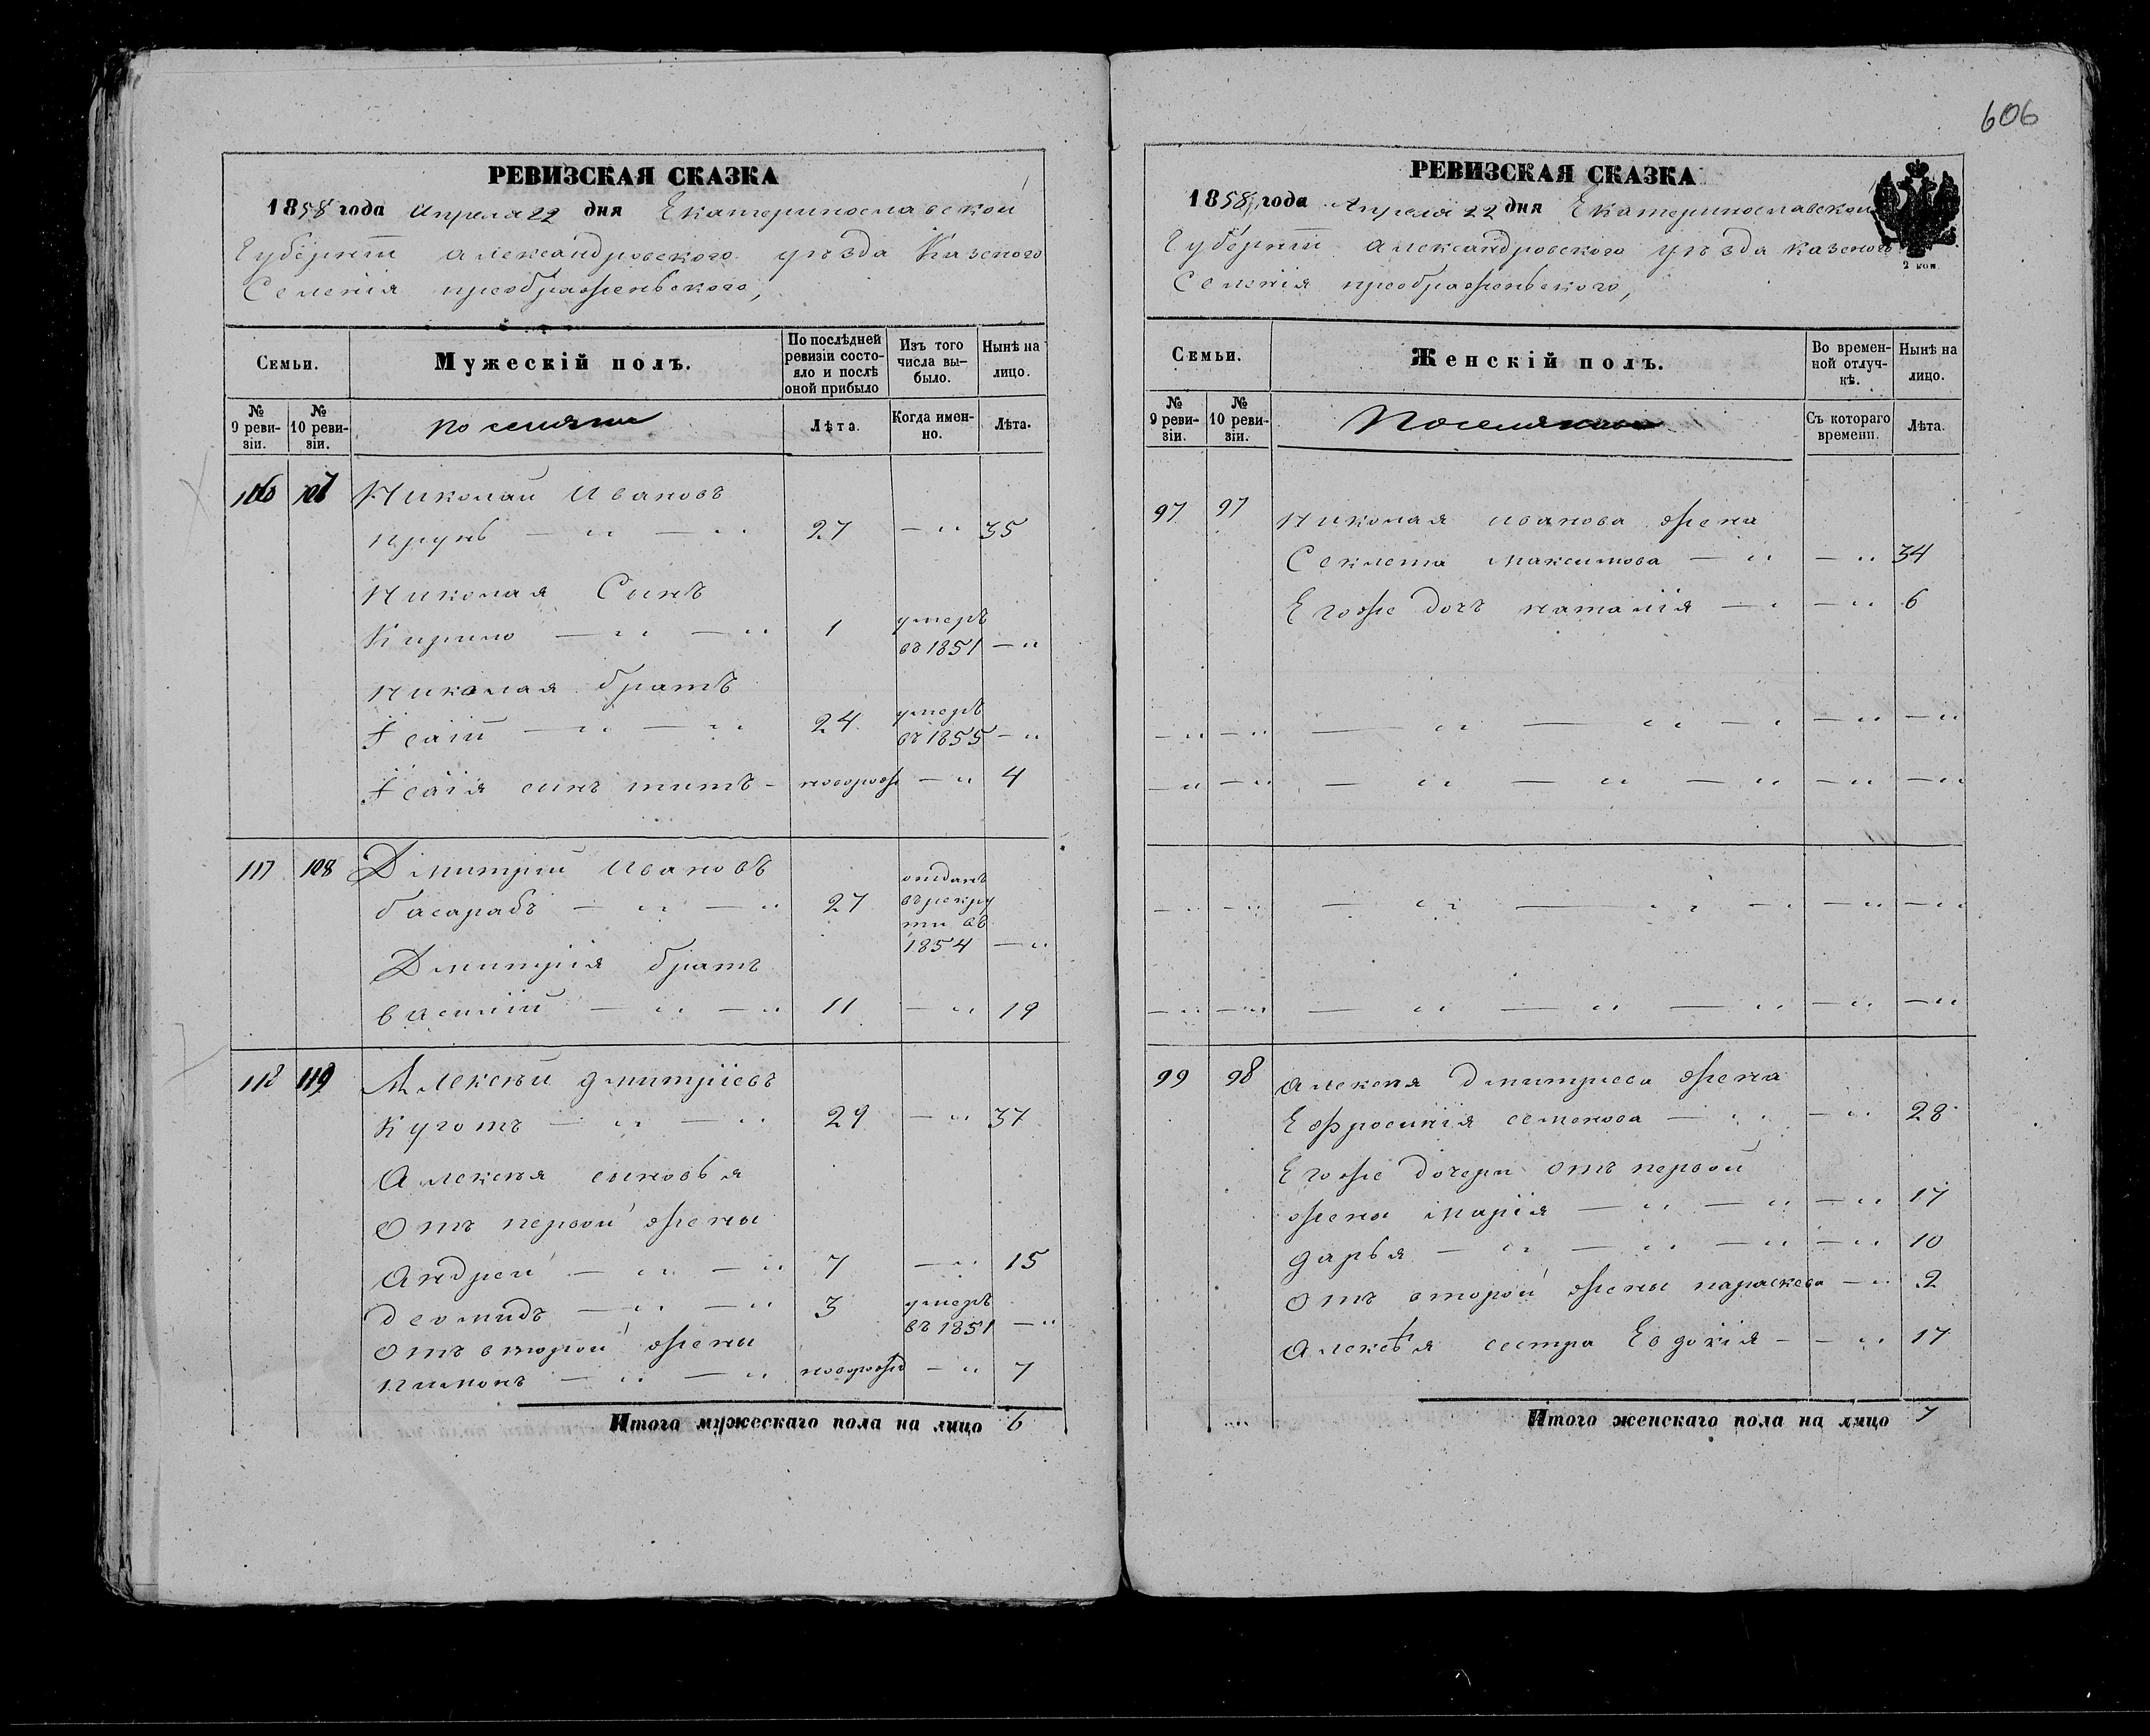 606
РЕВИЗСКАЯ СКАЗКА
1858 года Апреля 22 дня Екатеринославской
Губерніи Александровского уѣзда Казеного
Селенія преображеньского,
Семьи.
Мужескій полъ.
По послѣдней ревизіи состояло и послѣ оной прибыло
Изъ того числа выбыло.
Нынѣ на лицо.
№ 9 ревизіи.
№ 10 ревизіи.
поселяни
Лѣта.
Когда именно.
Лѣта.
107 Николай Ивановъ
— „ — „ 27 — „ 35
Николая Синъ
Кирило — „ — „ 1 умеръ въ 1851 — „
Николая братъ
Ісаій — „ — „ 24 умеръ въ 1855 — „
Ісаія синъ титъ - новорож — „ 4
117 108 Дмитрій Ивановъ
басарабъ — „ — „ 27 отданъ въ рекрути въ 1854 — „
Дмитрія братъ
василій — „ — „ 11 — „ 19
118 119 Алексѣй дмитріевъ
— „ — „ 29 — „ 37
Алексѣя синовья
Отъ первой жены
Андрей — „ — „ 7 — „ 15
деомидъ — „ — „ 3 умеръ въ 1851 — „
Отъ второй жены
пимонъ — „ — „ новорожд — „ 7
Итого мужескаго пола на лицо 6
РЕВИЗСКАЯ СКАЗКА
1858 года Апреля 22 дня Екатеринославской
Губерніи Александровского уѣзда казеного
Селенія преображеньского,
2 коп.
Семьи.
Женскій полъ.
Во временной отлучкѣ.
Нынѣ на лицо.
№ 9 ревизіи.
№ 10 ревизіи.
Съ котораго времени.
Лѣта.
97 97 Николая иванова жена
Секлета максимова — „ — „ 34
Его же дочь наталія — „ — „ 6
— „ — „ — „ — „ — „ — „ — „
— „ — „ — „ — „ — „ — „ — „
— „ — „ — „ — „ — „ — „ — „
— „ — „ — „ — „ — „ — „ — „
99 98 Алексѣя Дмитриева жена
Ефросинія семенова — „ — „ 28
Его же дочери отъ первой
жены марія — „ — „ — „ 17
дарья — „ — „ — „ — „ 10
Отъ второй жены параскева — „ 2
Алексѣя сестра Евдокія - — „ 17
Итого женскаго пола на лицо 7